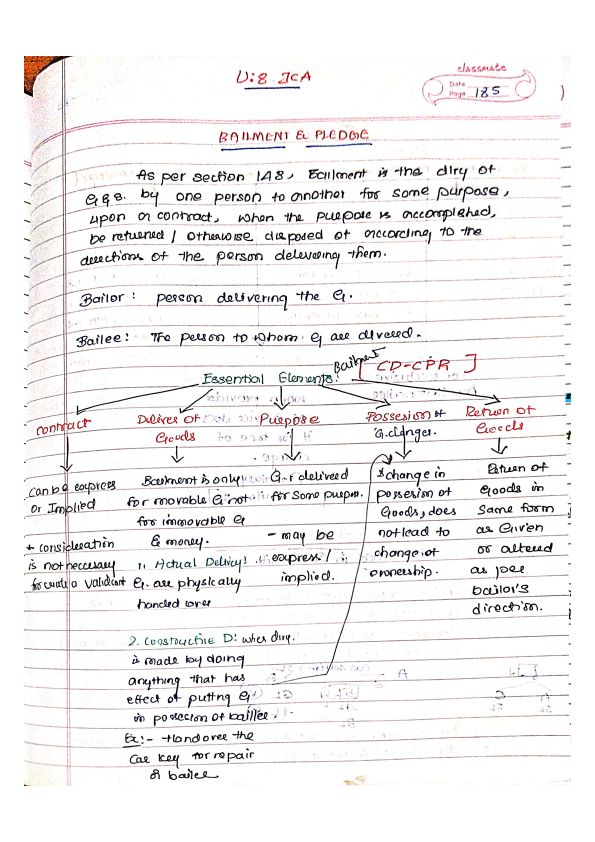 U:8 ICA
classmate
Date
Page 185
BAILMENT & PLEDGE
As per section 148, Bailment is the dlry of
G.g.s. by one person to another for some purpose,
upon a contract, when the purpose is accomplished,
be returned / otherwise disposed of according to the
directions of the person delevering them.
Bailor : person delivering the G.
Bailee: The person to whom G are divered.
Essential Elements: Bailment [CD-CPR]
Contract
can be express
or Implied
+ consideration
is not necessary
for create a valid cont
Deliver of
Goods
Bailment is only
for movable G not
for immovable G
& money.
1. Actual Delivery:
G. are physically
handed over
2. Constructive D: when dlry.
is made by doing
anything that has
effect of putting G
in possesion of baillee.
Ex:- Handover the
Car key for repair
& bailee
Purpose
G. r delivered
for some purpose.
- may be
express /
implied.
Possesion of
G. changes.
*change in
possesion of
Goods, does
not lead to
change of
ownership.
Return of
Goods
Return of
Goods in
Same form
as Given
or altered
as per
bailor's
direction.